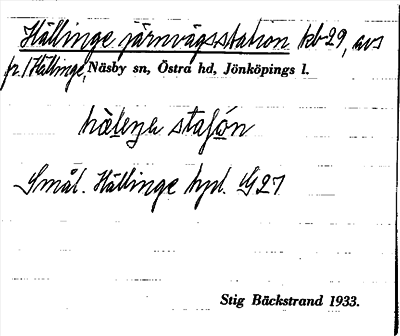 Hällinge järnvägsstation kb 29, avs
p. 1 Hällinge, Näsby sn, Östra hd, Jönköpings l.
Smål. Hällinge hpl. G27
Stig Bäckstrand 1933.